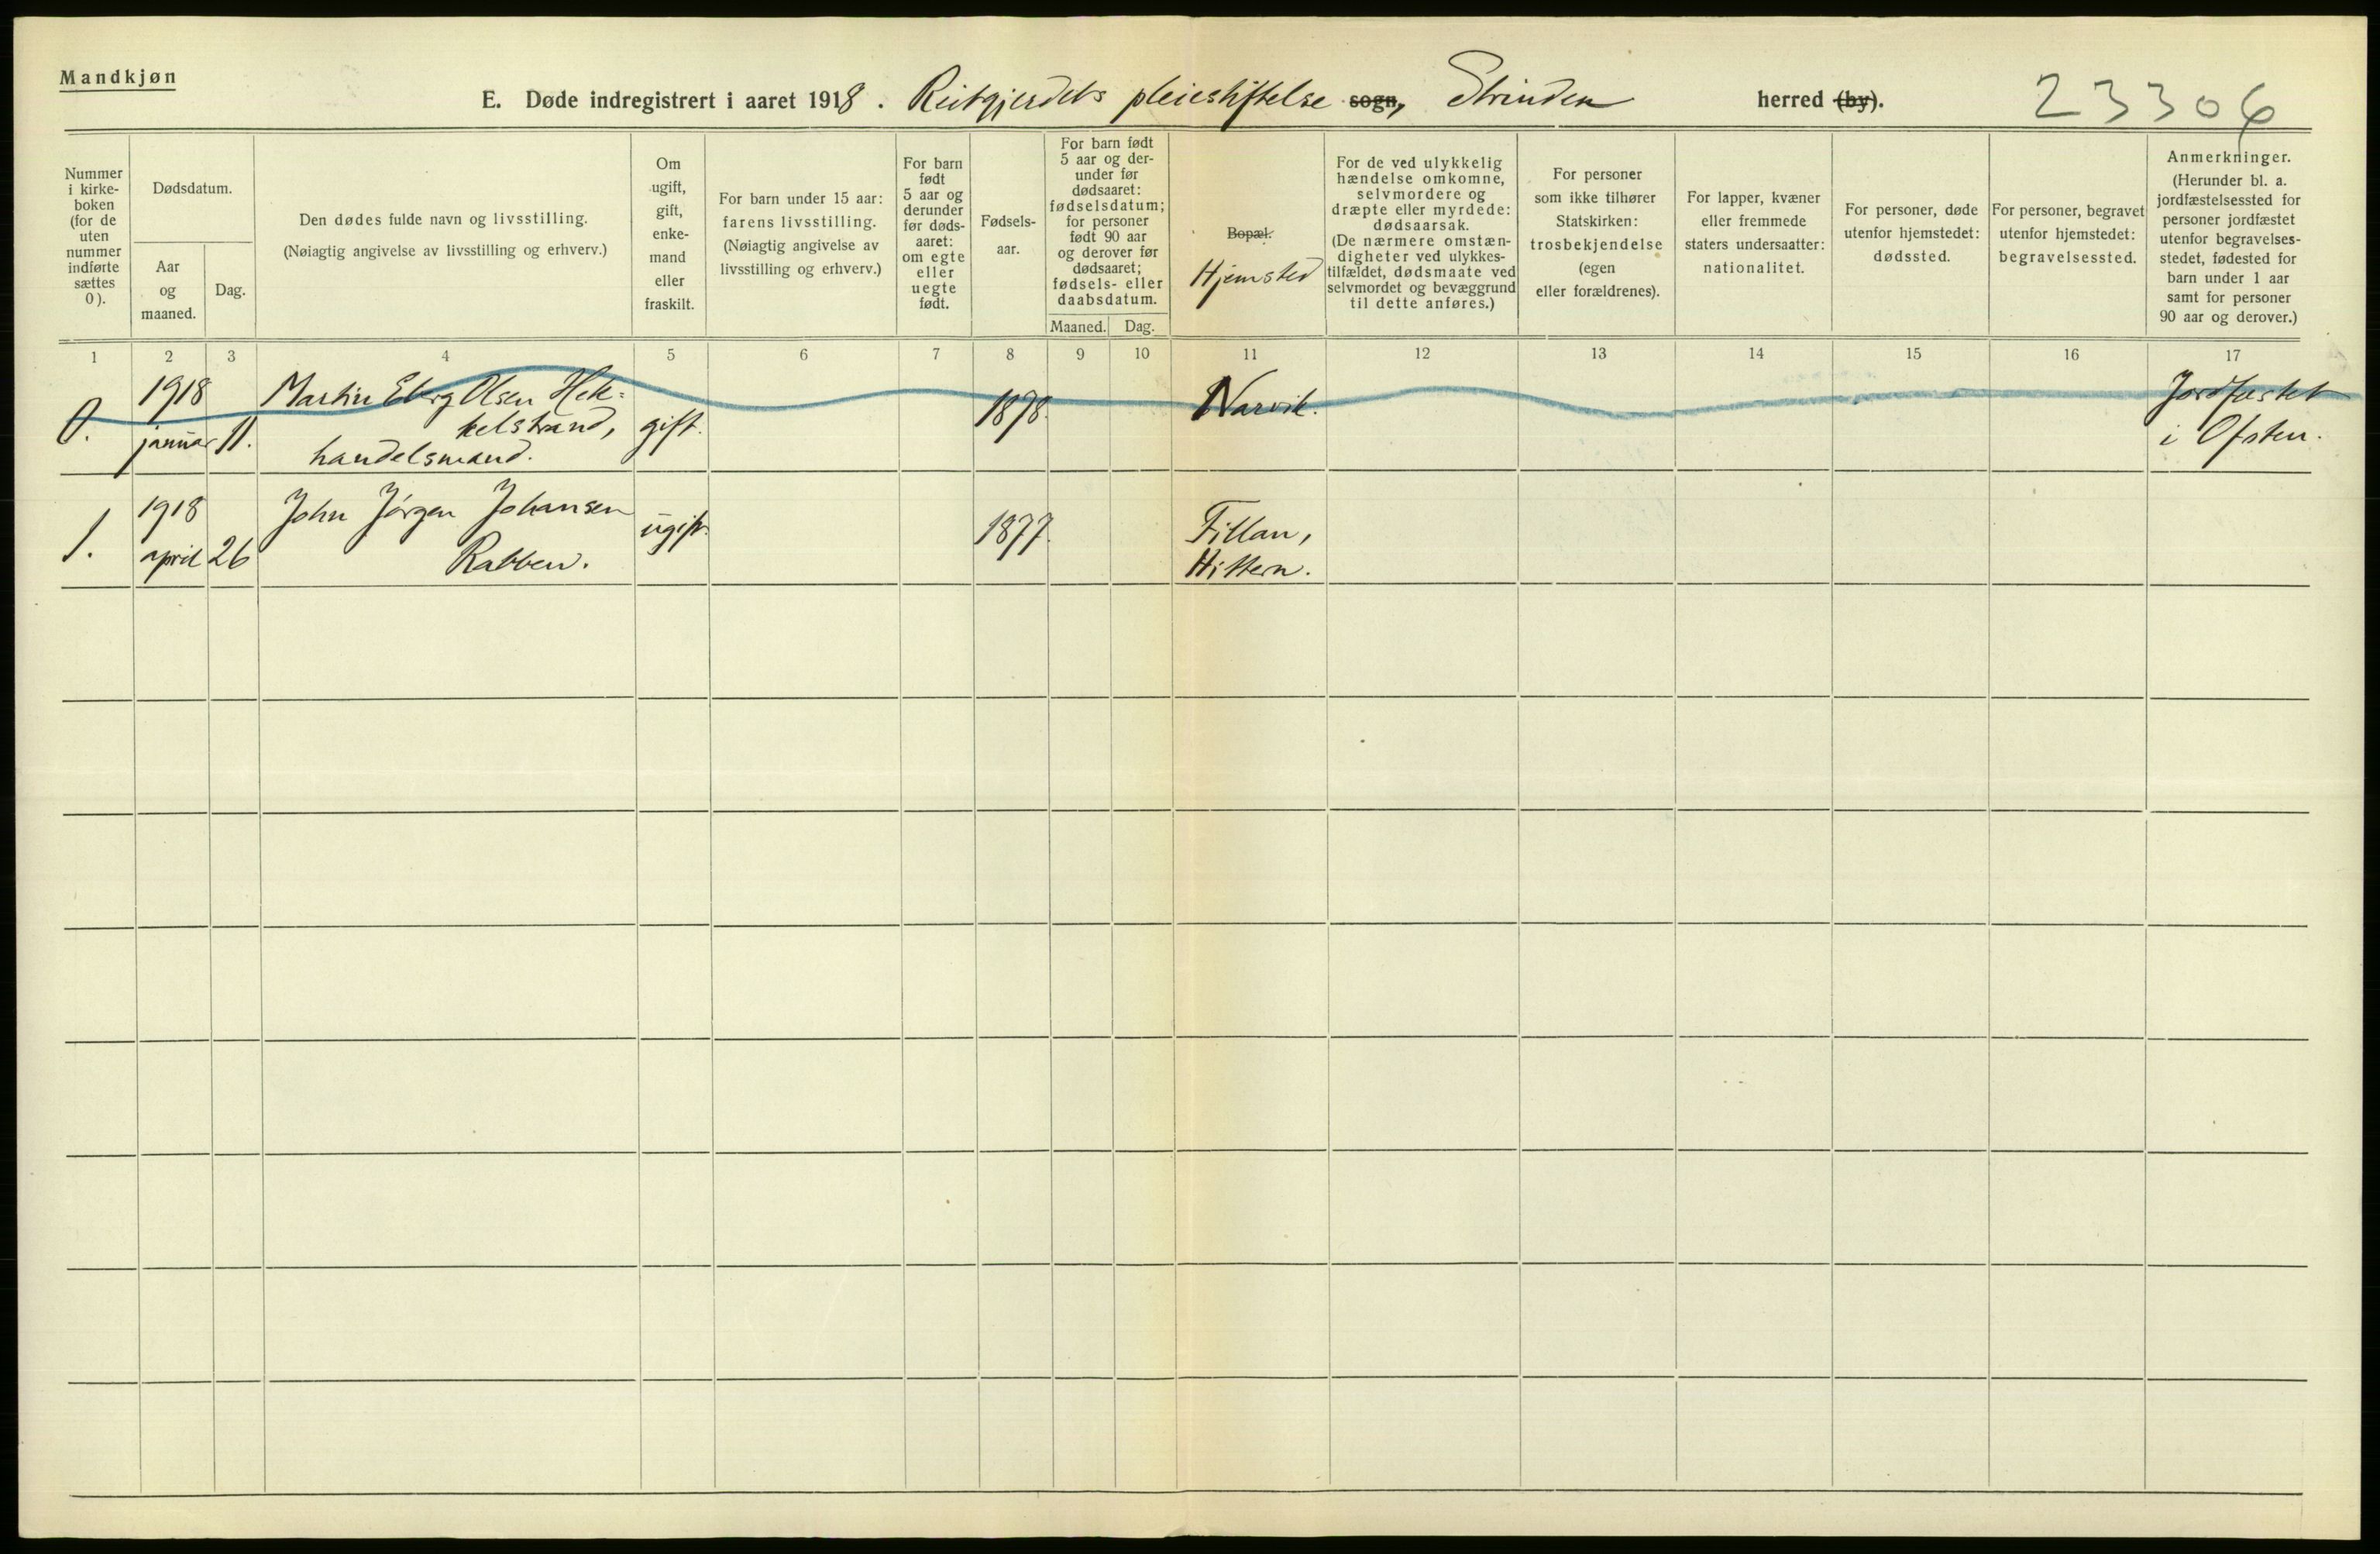 Mandkjøn
E. Døde indregistrert i aaret 1918. Reitgjerdets pleiestiftelse sogn, Strinden herred (by).
23306
Nummer
i kirke-
boken
(for de
uten
nummer
indførte
sættes
0).
Dødsdatum.
Aar
og
maaned.
Dag.
Den dødes fulde navn og livsstilling.
(Nøiagtig angivelse av livsstilling og erhverv.)
Om
ugift,
gift,
enke-
mand
eller
fraskilt.
For barn under 15 aar:
farens livsstilling.
(Nøiagtig angivelse av
livsstilling og erhverv.)
For barn
født
5 aar og
derunder
før døds-
aaret:
om egte
eller
uegte
født.
Fødsels-
aar.
For barn født
5 aar og der-
under før
dødsaaret:
fødselsdatum;
for personer
født 90 aar
og derover før
dødsaaret;
fødsels- eller
daabsdatum.
Maaned.
Dag.
Bopæl.
Hjemsted
For de ved ulykkelig
hændelse omkomne,
selvmordere og
dræpte eller myrdede:
dødsaarsak.
(De nærmere omstæn-
digheter ved ulykkes-
tilfældet, dødsmaate ved
selvmordet og bevæggrund
til dette anføres.)
For personer
som ikke tilhører
Statskirken:
trosbekjendelse
(egen
eller forældrenes).
For lapper, kvæner
eller fremmede
staters undersaatter:
nationalitet.
For personer, døde
utenfor hjemstedet:
dødssted.
For personer, begravet
utenfor hjemstedet:
begravelsessted.
Anmerkninger.
(Herunder bl. a.
jordfæstelsessted for
personer jordfæstet
utenfor begravelses-
stedet, fødested for
barn under 1 aar
samt for personer
90 aar og derover.)
1 2 3 4 5 6 7 8 9 10 11 12 13 14 15 16 17
0.
1918
januar 11.
Martin Olsen Hek-
kelstrand,
handelsmand.
gift.
1878.
Narvik.
Jordfæstet
i Ofoten.
1.
1918
april 26
John Jørgen Johansen
Rabben.
ugift.
1877.
Fillan,
Hittern.